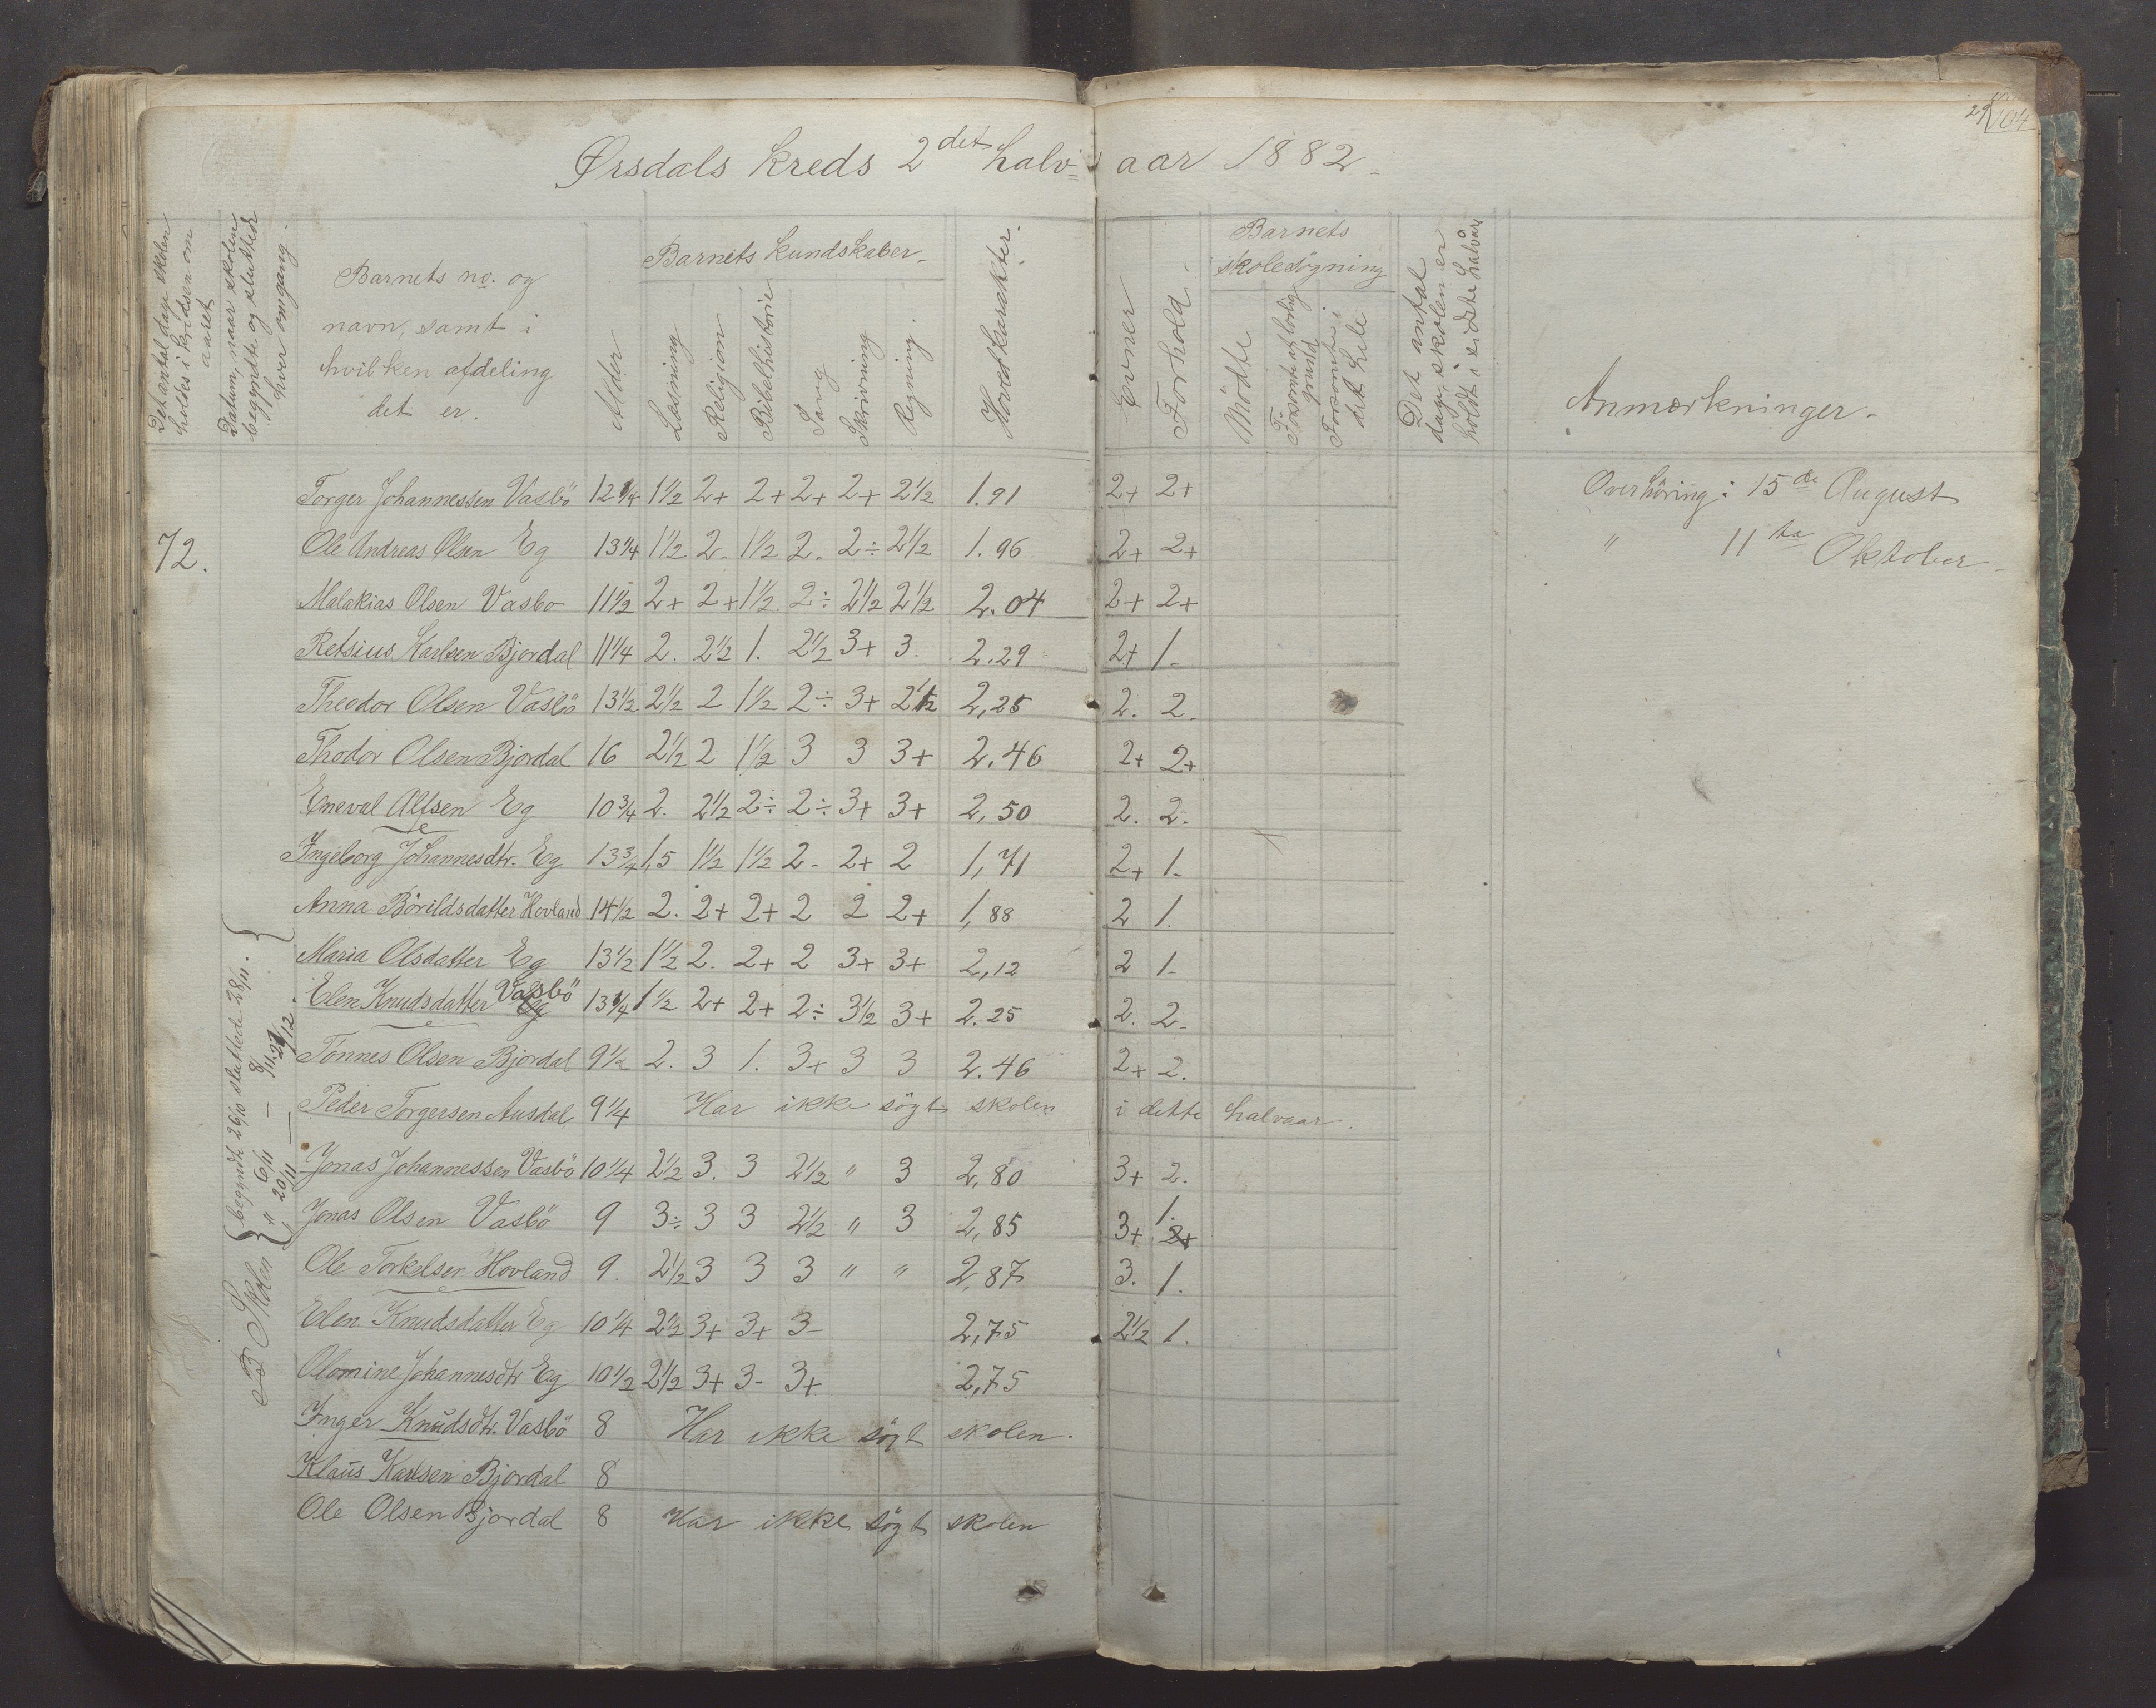 104
Ørsdals Kreds 2det halv-aar 1882.
Det antal dage skolen holdes i kredsen om aaret
Datum, naar skolen begyndte og sluttede hver omgang.
Barnets no. og navn, samt i hvilken afdeling det er.
Alder
Barnets kundskaber.
Læsning
Religion
Bibelhistorie
Sang
Skrivning
Regning.
Hovedkarakter.
Evner
Forhold.
Barnets skolesøgning
Mödte
Forsömte af lovlig grund
Forsömte i det hele
Det antal dage, skolen er holdt i sidste halvår
Anmærkninger.
Torger Johannessen Vasbö 12 1/4 1 1/2 2+ 2+ 2+ 2+ 2 1/2 1.91 2+ 2+ Overhöring: 15de August
72. Ole Andreas Olsen Eg 13 1/4 1 1/2 2. 1 1/2 2. 2÷ 2 1/2 1.96 2+ 2+ " 11te Oktober
Malakias Olsen Vasbo 11 1/2 2+ 2+ 1 1/2. 2÷ 2 1/2 2 1/2 2.04 2+ 2+
Retsius Karlsen Bjordal 11 1/4 2. 2 1/2 1. 2 1/2 3+ 3. 2.29 2+ 1.
Theodor Olsen Vasbö 13 1/2 2 1/2 2 1 1/2 2÷ 3+ 2 1/2 2,25 2. 2.
Thodor Olsen Bjordal 16 2 1/2 2 1 1/2 3 3 3+ 2.46 2+ 2+
Eneval Alfsen Eg 10 3/4 2. 2 1/2 2÷ 2÷ 3+ 3+ 2,50 2. 2.
Ingeborg Johannesdtr. Eg 13 3/4 1,5 1 1/2 1 1/2 2- 2+ 2 1,71 2+ 1.
Anna Börildsdatter Hovland 14 1/2 2. 2+ 2+ 2 2 2+ 1,88 2 1.
Maria Olsdatter Eg 13 1/2 1 1/2 2. 2+ 2 3+ 3+ 2,12 2 1.
Elen Knudsdatter Eg Vasbö 13 1/4 1 1/2 2+ 2+ 2÷ 3 1/2 3+ 2.25 2. 2-
Tönnes Olsen Bjordal 9 1/2 2. 3 1. 3+ 3 3 2.46 2+ 2.
Peder Torgersen Ausdal 9 1/4 Har ikke sögt skolen i dette halvaar.
Jonas Johannessen Vasbö 10 1/4 2 1/2 3. 3 2 1/2 " 3 2,80 3+ 2.
Jonas Olsen Vasbö 9 3÷ 3 3 2 1/2 " 3 2,85 3+ 2+ 1.
Ole Torkelsen Hovland 9. 2 1/2 3 3 3 " " 2,87 3. 1.
Elen Knudsdatter Eg 10 1/4 2 1/2 3+ 3+ 3- 2,75 2 1/2 1.
Olomine Johannesdtr Eg 10 1/2 2 1/2 3+ 3- 3+ 2,75
Inger Knudsdtr. Vasbö 8 Har ikke sögt skolen.
Klaus Karlsen Bjordal 8
Ole Olsen Bjordal 8 Har ikke sögt skolen
Skolen begyndte 26/10 sluttede 28/11.
" 6/11 —
" 20/11 —